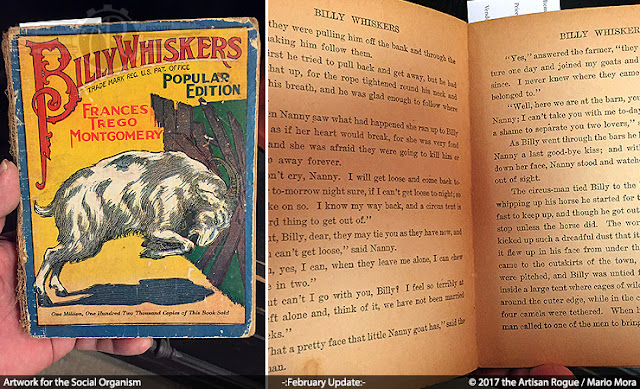 BILLY WHISKERS
TRADE MARK REG. U.S. PAT. OFFICE
POPULAR
EDITION
FRANCES
TREGO
MONTGOMERY
One Million, One Hundred Two Thousand Copies of This Book Sold
BILLY WHISKERS
they were pulling him off the bank and through the
making him follow them.
first he tried to pull back and get away, but he had
that up, for the rope tightened round his neck and
his breath, and he was glad enough to follow where
en Nanny saw what had happened she ran up to Billy
as if her heart would break, for she was very fond
and she was afraid they were going to kill him or
away forever.
n't cry, Nanny. I will get loose and come back
to-morrow night sure, if I can't get loose to-night; so
ke on so. I know my way back, and a circus tent is
rd thing to get out of."
t, Billy, dear, they may tie you as they have now, and
n can't get loose," said Nanny.
h, yes, I can, when they leave me alone, I can chew
e in two."
ut can't I go with you, Billy? I feel so terribly at
eft alone and, think of it, we have not been married
eks."
hat a pretty face that little Nanny goat has," said the
man.
BILLY WHISKER
"Yes," answered the farmer, "they
ture one day and joined my goats and
since. I never knew where they came
belonged to."
"Well, here we are at the barn, you
Nanny; I can't take you with me to-day
a shame to separate you two lovers,"
As Billy went through the bars he
Nanny a last good-bye kiss; and with
down her face, Nanny stood and watch
out of sight.
The circus-man tied Billy to the
whipping up his horse he started for
fast to keep up, and though he got out
stop unless the horse did. The wor
kicked up such a dreadful dust that it
it flew up in his face from under th
came to the outskirts of the town,
were pitched, and Billy was untied
inside a large tent where cages of wild
around the outer edge, while in the c
four camels were tethered. When h
man called to one of the men to bring
Artwork for the Social Organism
-:February Update:-
© 2017 the Artisan Rogue / Mario Mora